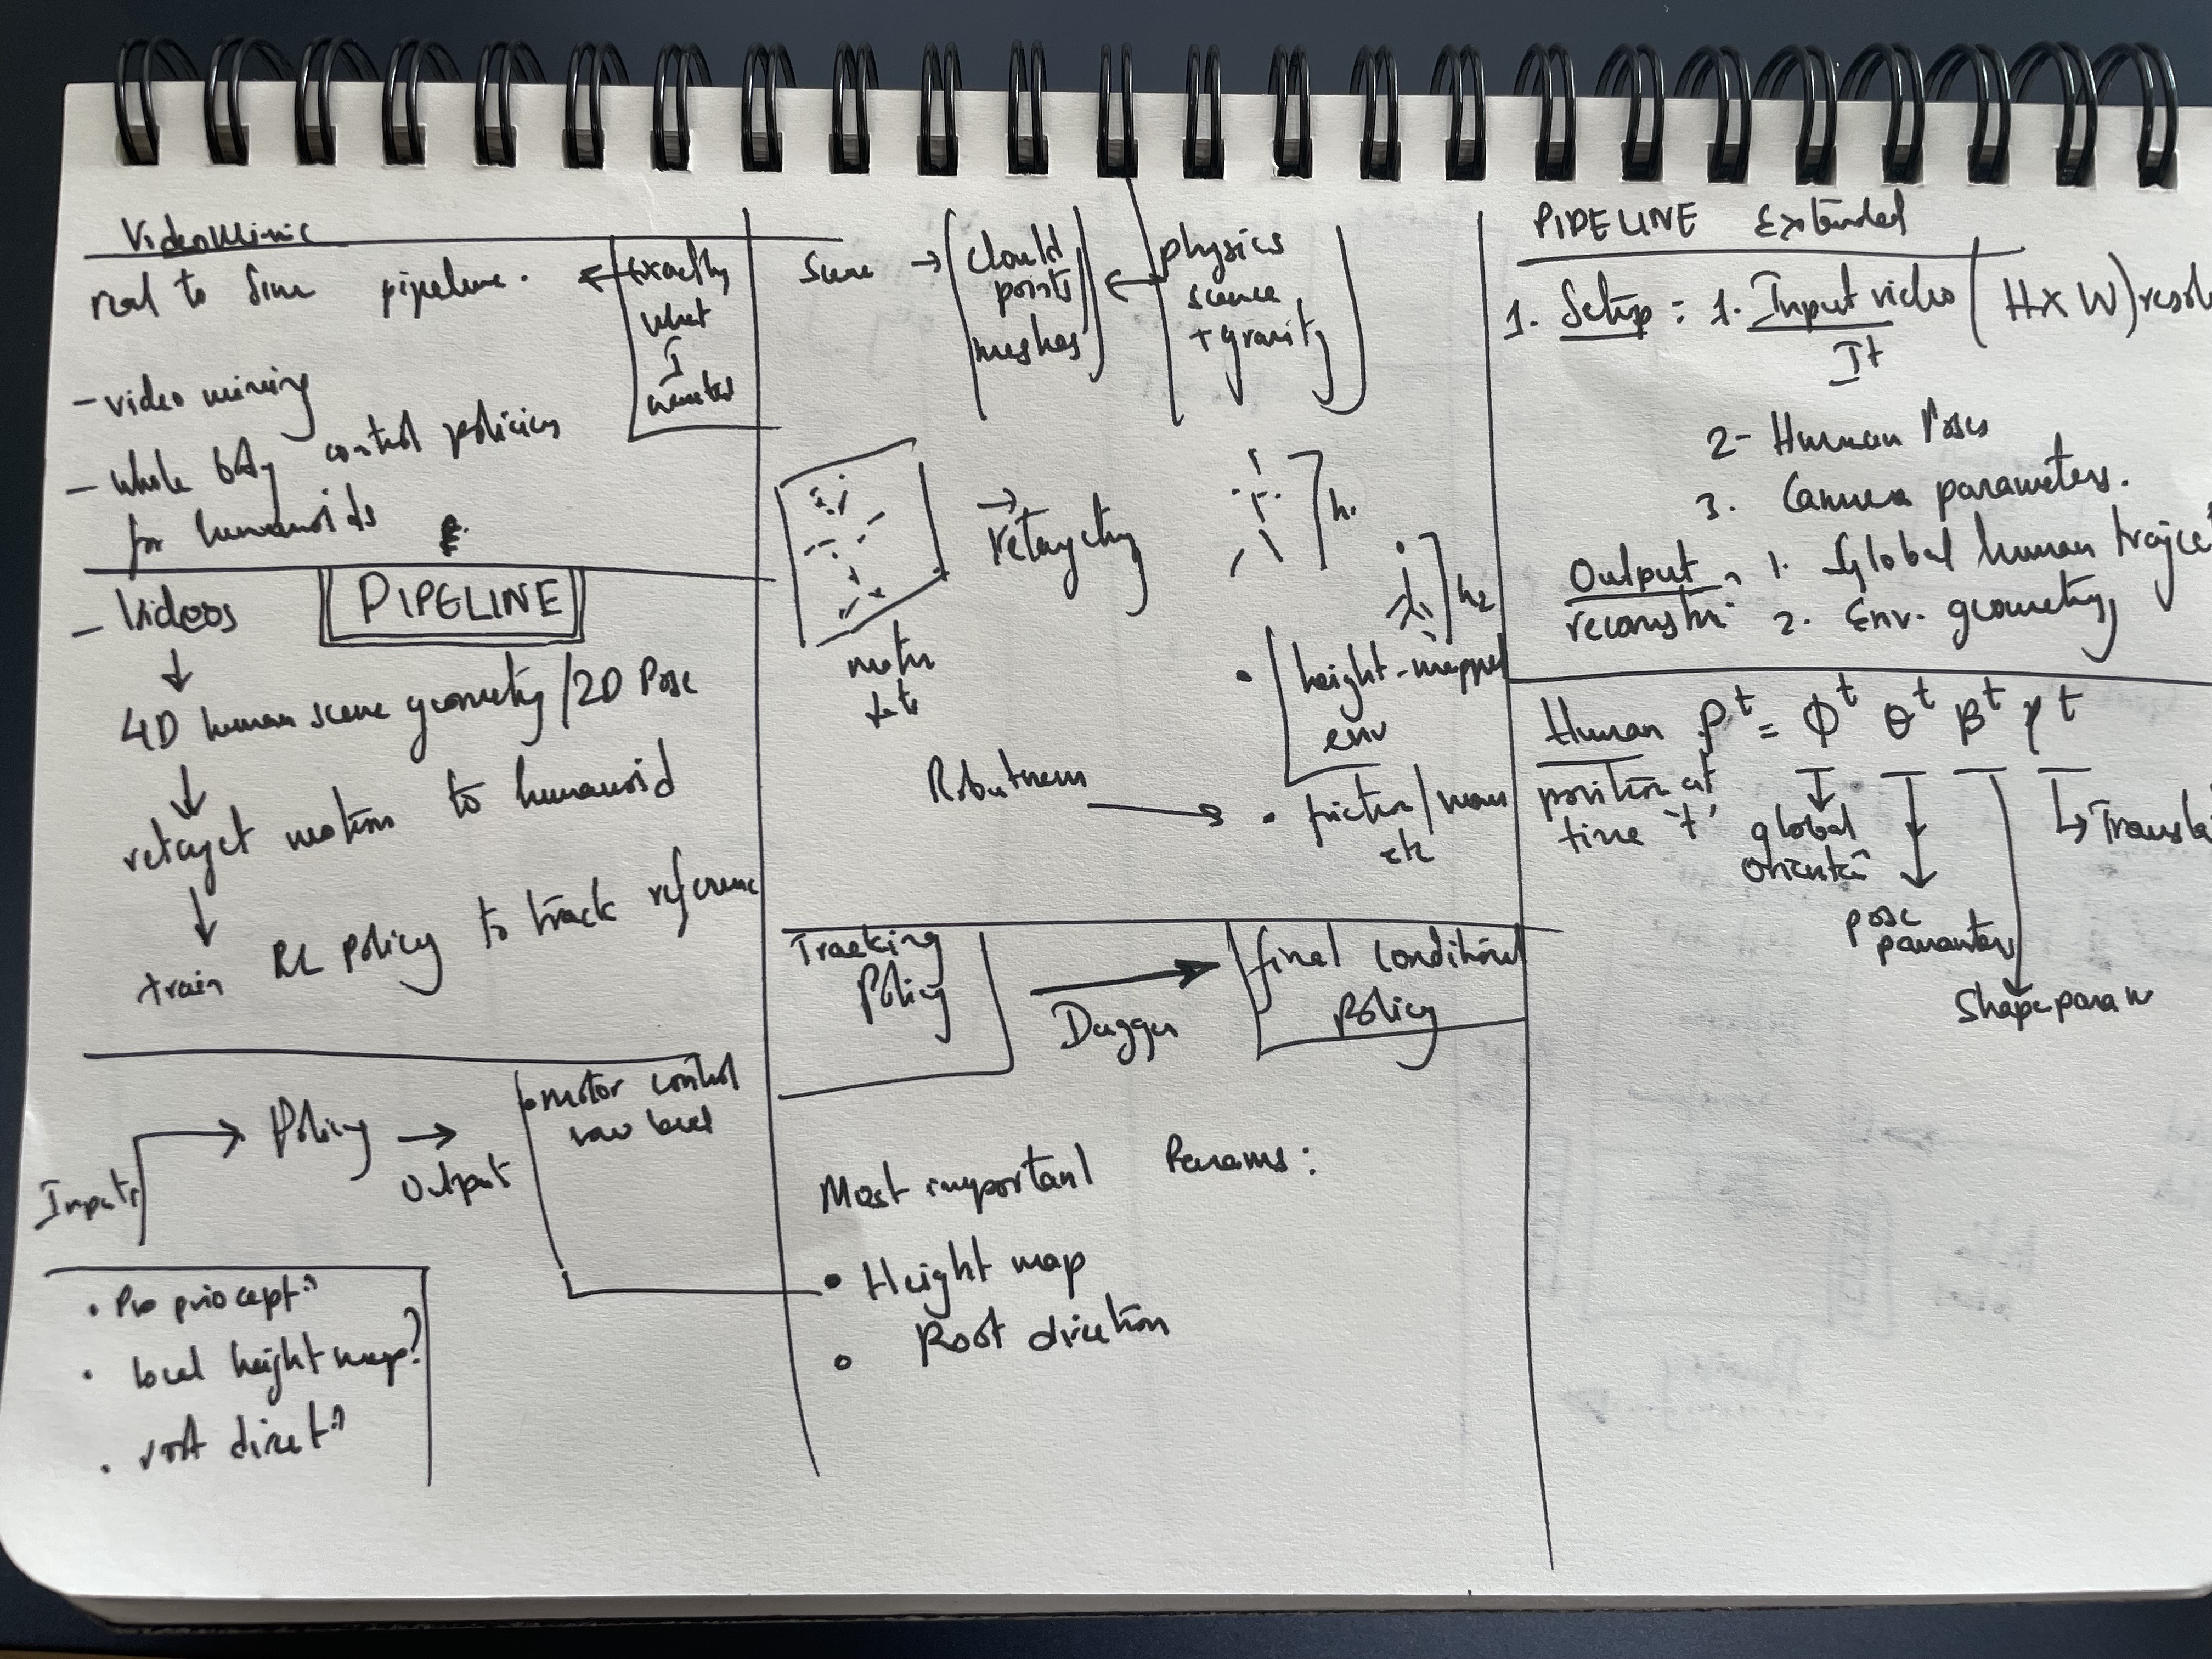 VideoMimic
real to sim pipeline.
← Exactly
what
I
wanted
- video mining
- whole body control policies
for humanoids
PIPELINE
- Videos
↓
4D human scene geometry / 2D Pose
↓
retarget motion to humanoid
↓
train RL policy to track reference
Inputs → Policy → Output
motor control
low level
• Proprioceptn
• local height maps?
• root directn
Scene → Cloud
points
meshes
← physics
scene
+ gravity
→ retargeting
h1
h2
• height-mapped
env
Robutness → • friction / mass
etc
Tracking
Policy
Dagger
final conditional
policy
Most important Params:
• Height map
• Root direction
PIPELINE Extended
1. Setup: 1. Input video (H x W) resol
It
2- Human Pose
3. Camera parameters.
Output: 1. global human traject
reconstn: 2. Env. geometry
Human
position at
time t.
pt = φt θt βt γt
global
orientn
pose
parameters
shape param
↳ Transla